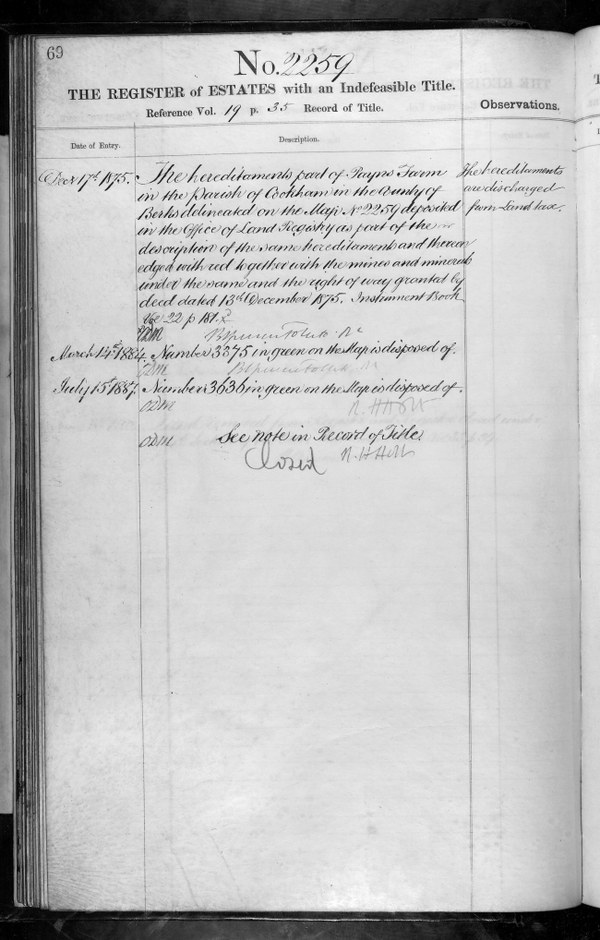 69
No. 2259
THE REGISTER of ESTATES with an Indefeasible Title.
Reference Vol. 19 p. 35 Record of Title.
Observations.
Date of Entry.
Description.
Decr 17th 1875.
The hereditaments part of Payns Farm
in the Parish of Cookham in the County of
Berks delineated on the Map No 2259 deposited
in the Office of Land Registry as part of the
description of the same hereditaments and thereon
edged with red together with the mines and minerals
under the same and the right of way granted by
deed dated 13th December 1875. Instrument Book
Vol 22 p 181.
The hereditaments
are discharged
from Land tax.
March 14th 1884.
Number 3375 in green on the Map is disposed of.
July 15th 1887.
Number 3636 in green on the Map is disposed of.
R. H Holt
See note in Record of Title
Closed
R. H Holt